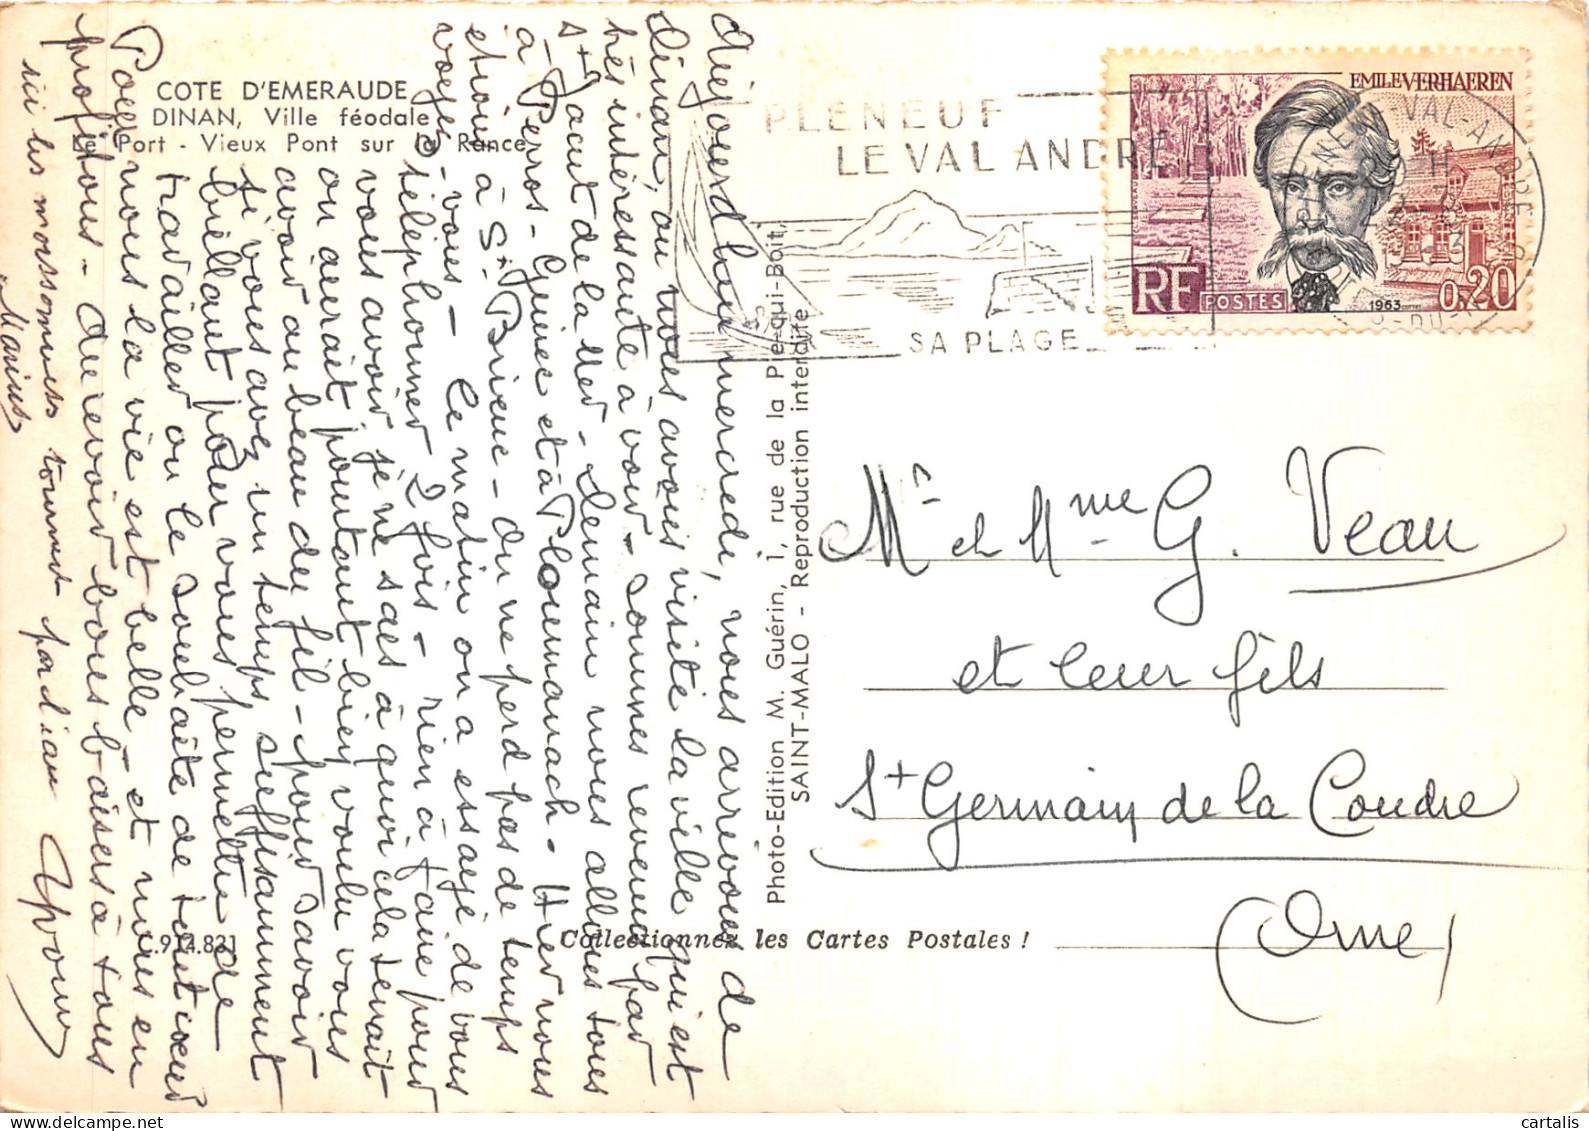 COTE D'EMERAUDE
DINAN, Ville féodale
Le Port - Vieux Pont sur la Rance
Aujourd'hui mercredi, nous arrivons de
dinan, ou nous avons visité la ville qui est
très intéressante à voir - sommes revenus par
St Jacut de la Mer - demain nous allons tous
à - Perros - Guirec et à Ploumanach - Hier nous
etions à St Brieuc - On ne perd pas de temps
voyez - vous - Ce matin on a essayé de vous
téléphoner 2 fois - rien à faire pour
vous avoir je ne sais à quoi cela tenait
on aurait pourtant bien voulu vous
avoir au beau du fil - pour savoir
si vous avez un temps suffisamment
brillant pour vous permettre de
travailler on le souhaite de tout cœur
Pour nous la vie est belle - et nous en
profitons - Au revoir bons baisers à tous
ici les moissonneuses tournent
Marius
PLENEUF
LE VAL ANDRE
SA PLAGE
EMILE VERHAEREN
RF
POSTES
1963
0,20
Photo-Edition M. Guérin, 1, rue de la Pie-qui-Boit,
SAINT-MALO - Reproduction interdite
Mr et Mme G. Veau
et leur fils
St Germain de la Coudre
(Orne)
Collectionnez les Cartes Postales !
cartalis